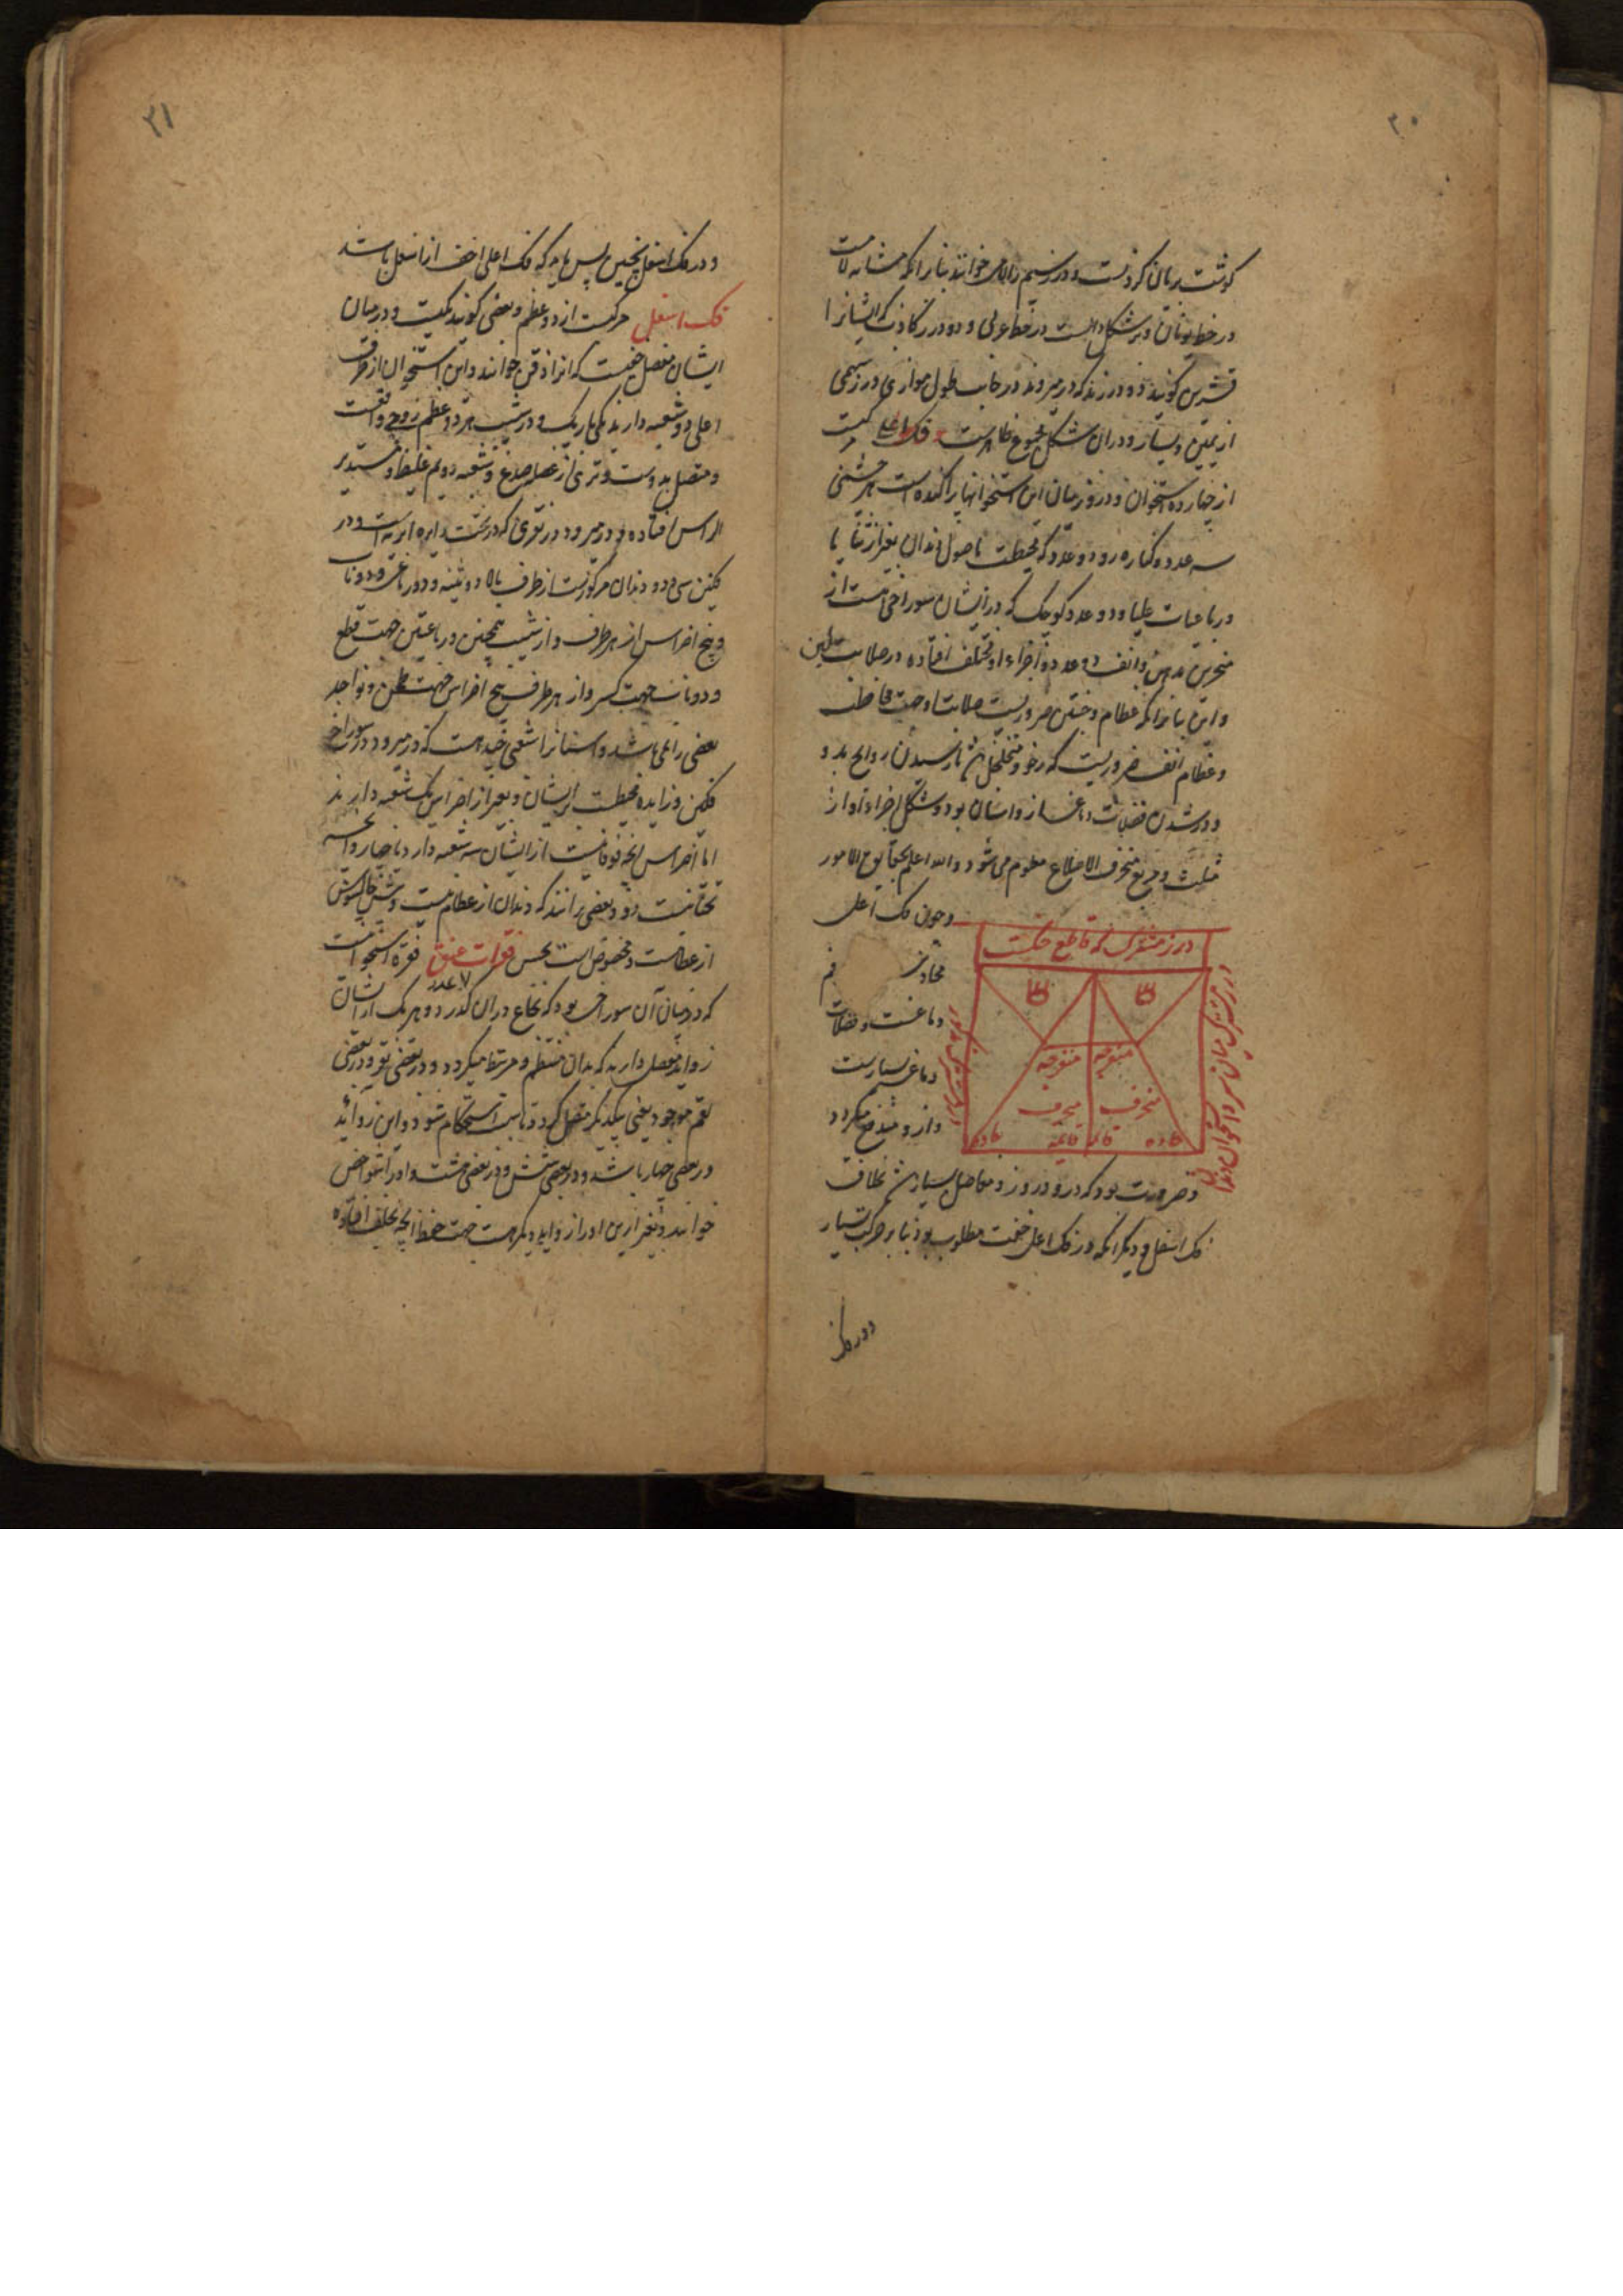 ۳۰
کوشت بر بالای کردنست و درز سیم را لامی خوانند بنابر آنکه مشابه لامست
در خط یونانی و بر شکل دالست در خط عربی و دو درز کاذب که ایشانرا
قشریین کویند دو درزند که در میروند در جانب طول موازی درز سهمی
از یمین و یسار و در آن شکل مجموع ظاهرست فک اعلی مرکبست
از چهارده استخوان و درو زمیان این استخوانها پراکنده است هر چشمی
سه عدد و کناره رو دو عدد که محیطست باصول دندان بغیر از ثنایا
و رباعیات علیا و دو عدد کوچک که در ایشان سوراخی هست از
منخرین بدهن و انف دو عدد و اجزاء او مختلف افتاده در صلابت و لین
و این بنا برآنکه عظام وجنتین ضروریست صلابت او جهت محافظت
و عظام انف ضروریست که رخو و متخلخل باشد تا رسیدن روایح بدو
و دور شدن فضلات دماغ ازو آسان بود و شکل اجزاء او از
مثلث و مربع منحرف الاضلاع معلوم می‌شود والله اعلم بحقایق الامور
وچون فک اعلی
محاذی فم
دماغست و فضلات
دماغ بسیارست
و ازو مندفع میکردد
درز مشترک که قاطع حنکست
حاده حاده
منفرجه منفرجه
منحرف منحرف
حاده قائمه قائمه حاده
درز مشترک میان سر و استخوان وتدی
و ضرورت بود که درو دروز و مفاصل بسیار باشد بخلاف
فک اسفل و دیکر آنکه در فک اعلی خفت مطلوب بود بنابر حرکت بسیار
ودر فک
۳۱
و در فک اسفل نچنین پس باید که فک اعلی اخف از اسفل باشد
فک اسفل مرکبست از دو عظم و بعضی کویند یکیست و در میان
ایشان مفصل خفیست که انرا ذقن خوانند و این استخوان از طرف
اعلی دو شعبه دارند یکی باریک و در شیب هر دو عظم زوج واقعست
و متصل بدوست وتری از عضله صدغ و شعبه دویم غلیظ و مستدیر
الراس افتاده و در میرود در نقری که در تحت زایده ابریه است و در
فکین سی و دو دندان مرکوزست از طرف بالا دو ثنیه و دو رباعی و دو ناب
و پنج اضراس از هر طرف و از شیب همچنین و رباعیتین جهت قطع
و دو ناب جهت کسر و از هر طرف پنج اضراس جهت طحن و نواجد
بعضی را نمی‌باشد و اسنانرا شعبی چند هست که در میرود در سوراخ
فکین و زایده محیطست بر ایشان و بغیر از اضراس یک شعبه دارند
اما اضراس آنچه فوقانیست از ایشان سه شعبه دارد یا چهار و آنچه
تحتانیست دو و بعضی برانند که دندان از عظام نیست و شیخ جالینوس
از عظامست و مخصوص است بحس فقرات عنق فقره استخوانیست
۷ عدد
که در میان آن سوراخی بود که نخاع در آن کذرد و هر یک از ایشان
زواید مفصل دارند که بدان منتظم و مرتبط میکردد و در بعضی نتو و در بعضی
لقم موجود یعنی بیکدیکر متصل کردد تا سبب استحکام شود و این زواید
در بعضی چهار باشد و در بعضی شش و در بعضی هشت و او را شواخص
خوانند و بغیر ازین او را زواید دیکر هست جهت حفظ آنچه بخلف افتاده